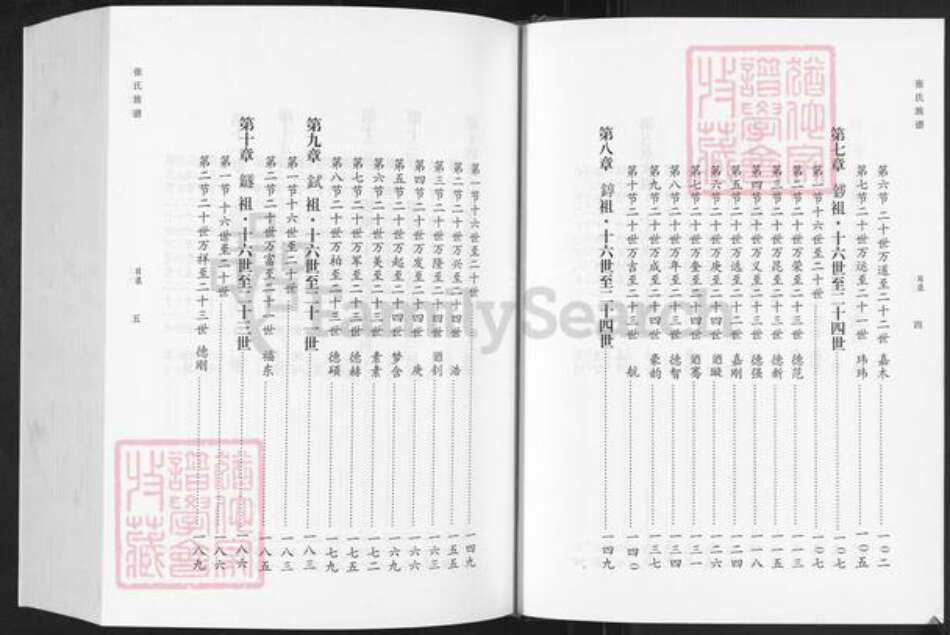 张氏族谱
目录
四
第六节 二十世万道至二十二世 嘉木 一〇二
第七节二十世万远至二十一世 玮玮 一〇五
第七章 祖·十六世至二十四世 一〇七
第一节十六世至二十世 一〇七
第二节二十世万荣至二十三世 德范 一一三
第三节二十世万昆至二十三世 德新 一一五
第四节二十世万义至二十三世 德强 一一八
第五节二十世万选至二十二世 嘉刚 一二四
第六节二十世万庚至二十四世 迺璇 一二六
第七节二十世万奎至二十四世 迺骞 一三一
第八节二十世万年至二十三世 德智 一三四
第九节二十世万成至二十四世 豪韵 一三七
第十节二十世万言至二十三世 航 一四〇
第八章 祖·十六世至二十四世 一四九
第一节十六世至二十世 一四九
第二节二十世万兴至二十四世 浩 一五五
第三节二十世万隆至二十四世 迺钊 一六三
第四节二十世万发至二十四世 庚 一六六
第五节二十世万起至二十四世 梦含 一六九
第六节二十世万美至二十三世 素素 一七二
第七节二十世万军至二十三世 德赫 一七五
第八节二十世万柏至二十三世 德硕 一七九
第九章 祖·十六世至二十一世 一八三
第一节十六世至二十世 一八三
第二节二十世万富至二十一世 福东 一八五
第十章 祖·十六世至二十三世 一八六
第一节 十六世至二十世 一八六
第二节二十世万祥至二十三世 德刚 一八九
张氏族谱
目录
五
FamilySearch